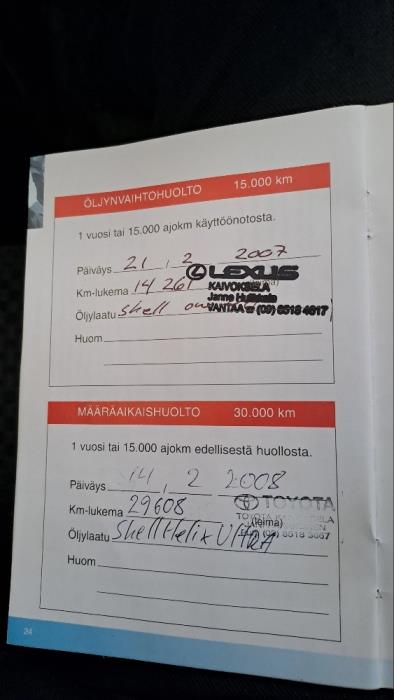 ÖLJYNVAIHTOHUOLTO 15.000 km
1 vuosi tai 15.000 ajokm käyttöönotosta.
Päiväys 21 . 2 2007
LEXUS
Km-lukema 14 261 KAIVOKSELA
Janne
Öljylaatu Shell VANTAA ☎ (09) 8518 4617
Huom
MÄÄRÄAIKAISHUOLTO 30.000 km
1 vuosi tai 15.000 ajokm edellisestä huollosta.
Päiväys 14 . 2 2008
Km-lukema 29608 TOYOTA
(leima)
Öljylaatu Shell Helix Ultra
Huom
24